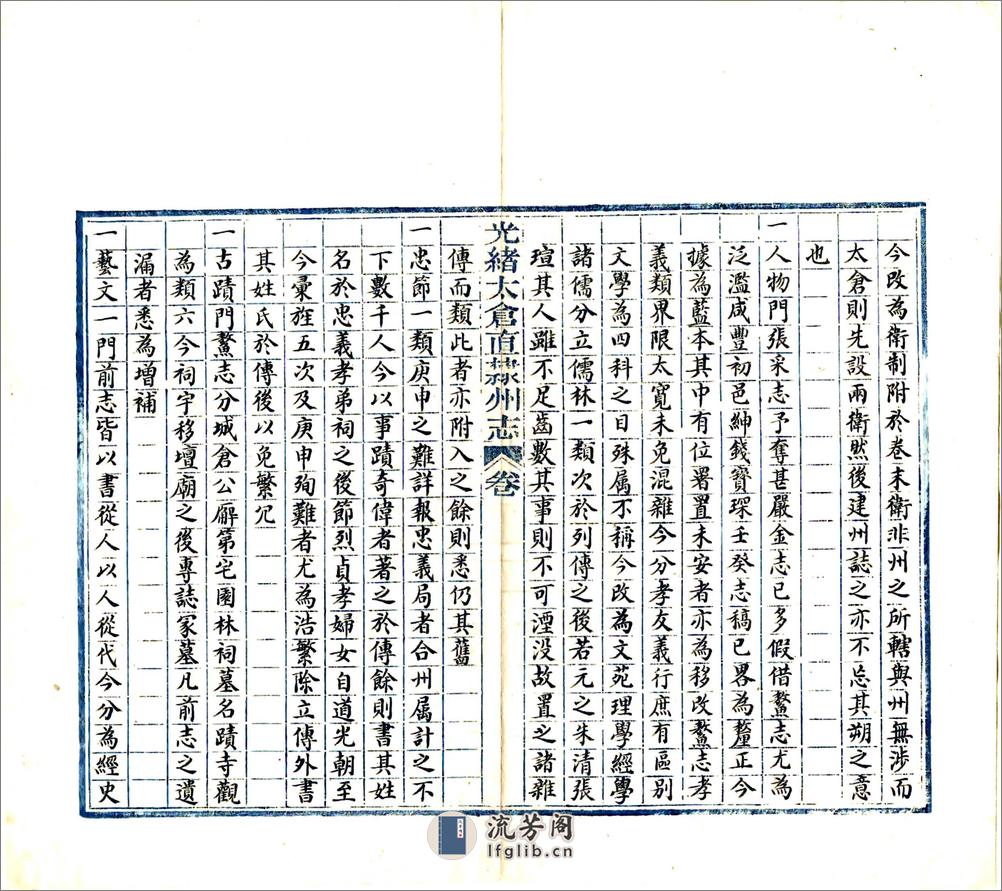 今改為衛制附於卷末衛非州之所轄與州無涉而
太倉則先設兩衛然後建州誌之亦不忘其朔之意
也
一人物門張采志予奪甚嚴金志已多假借鰲志尤為
泛濫咸豐初邑紳錢寶琛壬癸志稿已畧為釐正今
據為藍本其中有位署置未安者亦為移改鰲志孝
義類界限太寬未免混雜今分孝友義行庶有區別
文學為四科之目殊屬不稱今改為文苑理學經學
諸儒分立儒林一類次於列傳之後若元之朱清張
瑄其人雖不足齒數其事則不可湮没故置之諸雜
光緒太倉直隸州志 卷
傳而類此者亦附入之餘則悉仍其舊
一忠節一類庚申之難詳報忠義局者合州屬計之不
下數千人今以事蹟奇偉者著之於傳餘則書其姓
名於忠義孝弟祠之後節烈貞孝婦女自道光朝至
今彙旌五次及庚申殉難者尤為浩繁除立傳外書
其姓氏於傳後以免繁冗
一古蹟門鰲志分城倉公廨第宅園林祠墓名蹟寺觀
為類六今祠宇移壇廟之後專誌冢墓凡前志之遺
漏者悉為增補
一藝文一門前志皆以書從人以人從代今分為經史
流芳阁
lfglib.cn